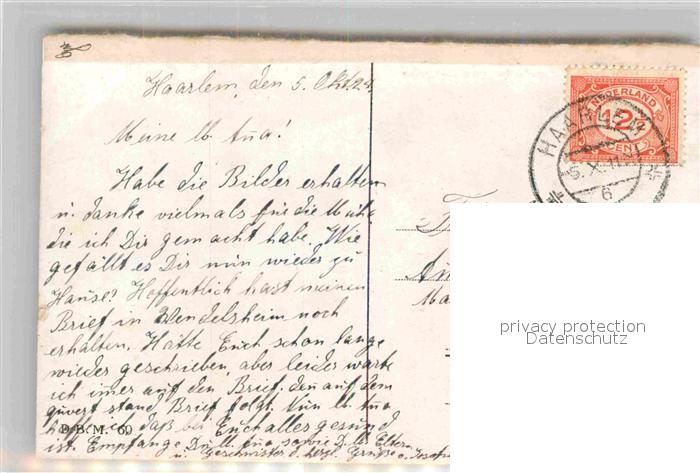 Haarlem, den 5. Okt. 24.
Meine lb. Ana!
Habe die Bilder erhalten
u. danke vielmals für die Mühe
die ich Dir gemacht habe. Wie
gefällt es Dir nun wieder zu
Hause? Hoffentlich hast meinen
Brief in Wendelsheim noch
erhalten. Hätte Euch schon lange
wieder geschrieben, aber leider warte
ich imer auf den Brief, den auf dem
quvert stand Brief folgt. Nun lb. Ana
daß bei Euch alles gesund
ist. Empfange Du lb. Ana, sowie D. lb. Eltern
u. Geschwister d. herzl. Grüße
D.B.M. 60
NEDERLAND
12½
CENT
HAARLEM
6
privacy protection
Datenschutz